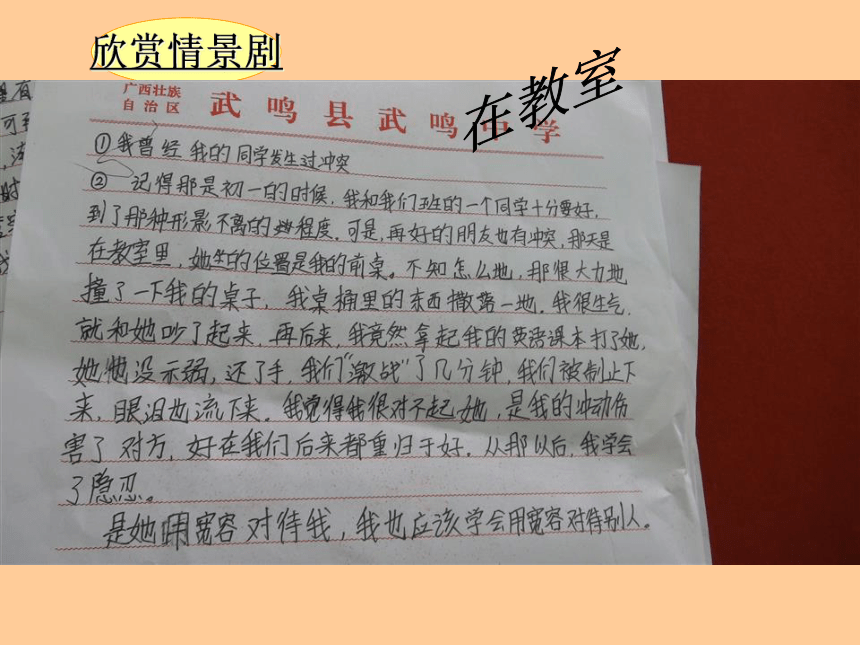 欣赏情景剧
在教室
广西壮族
自治区 武鸣县武鸣中学
①我曾经我的同学发生过冲突
② 记得那是初一的时候,我和我们班的一个同学十分要好,
到了那种形影不离的程度。可是,再好的朋友也有冲突,那天是
在教室里,她坐的位置是我的前桌。不知怎么地,那很大力地
撞了一下我的桌子,我桌桶里的东西撒落一地。我很生气,
就和她吵了起来,再后来,我竟然拿起我的英语课本打了她,
她也没示弱,还了手,我们“激战”了几分钟,我们被制止下
来,眼泪也流下来。我觉得我很对不起她,是我的冲动伤
害了对方,好在我们后来都重归于好。从那以后,我学会
了隐忍。
是她用宽容对待我,我也应该学会用宽容对待别人。